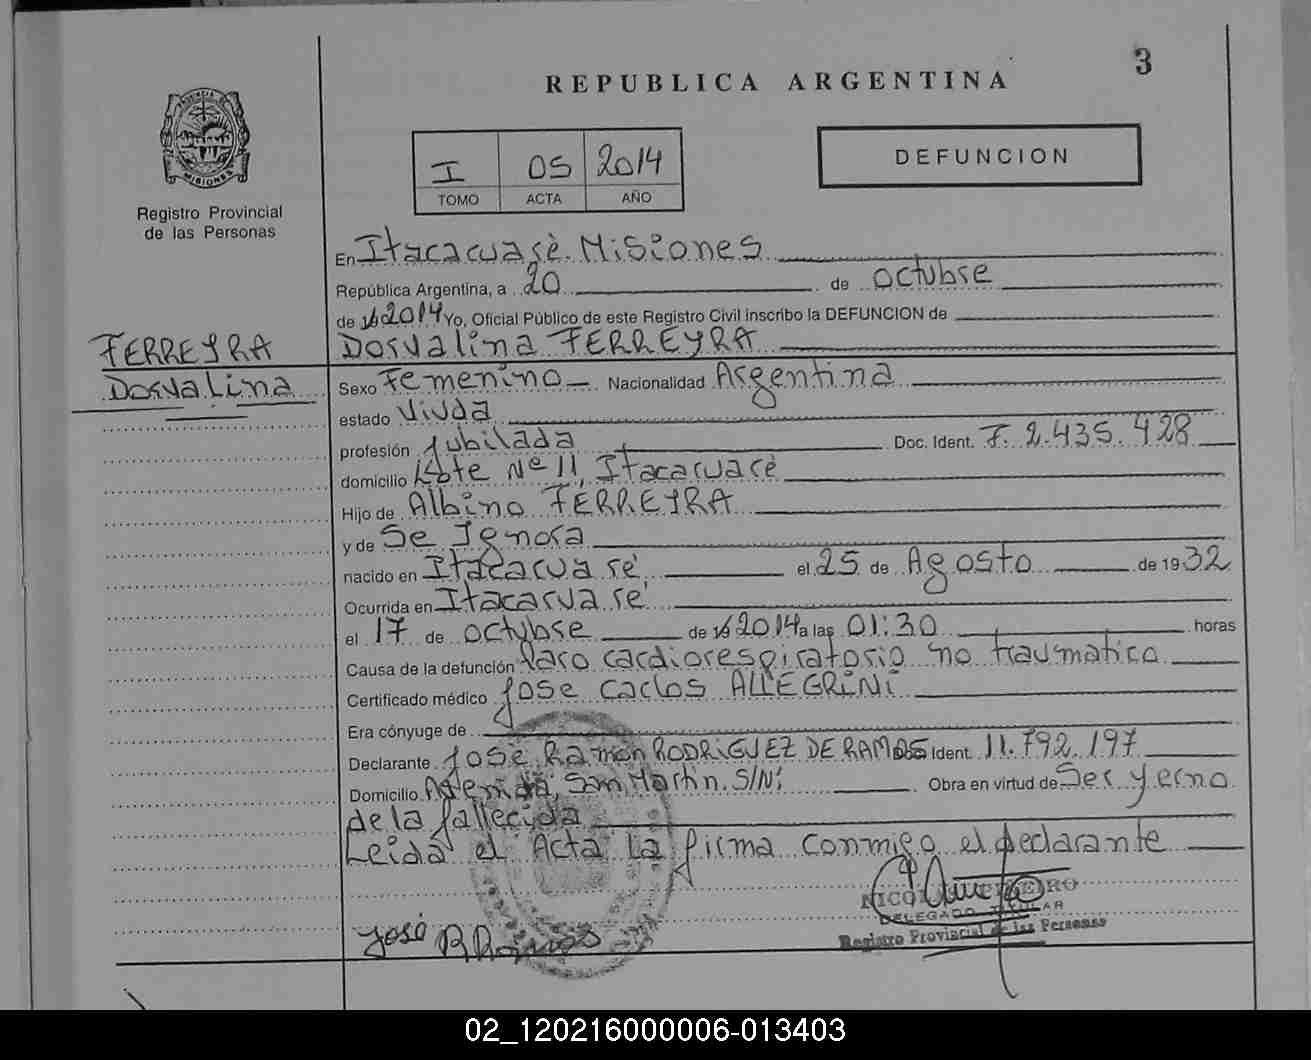 3
REPUBLICA ARGENTINA
PROVINCIA DE MISIONES
Registro Provincial
de las Personas
I 05 2014
TOMO ACTA AÑO
DEFUNCION
En Itacacuasè. Misiones
República Argentina, a 20 de octubse
de 19 2014 Yo, Oficial Público de este Registro Civil inscribo la DEFUNCION de
FERREYRA
Dosvalina
Dosvalina FERREYRA
Sexo Femenino Nacionalidad Argentina
estado Viuda
profesión Jubilada Doc. Ident. F. 2.435.428
domicilio Lote Nº 11, Itacaruaré
Hijo de Albino FERREYRA
y de Se Ignora
nacido en Itacaruaré el 25 de Agosto de 19 32
Ocurrida en Itacaruaré
el 17 de octubse de 19 2014 a las 01:30 horas
Causa de la defunción Paro cardiorespiratorio no traumatico
Certificado médico Jose Carlos ALLEGRINI
Era cónyuge de
Declarante Josè Ramón RODRIGUEZ DE RAMOS Doc. Ident. 11.792.197
Domicilio Avenida San Martin. S/Nº Obra en virtud de Ser yerno
de la fallecida
Leida el Acta la firma conmigo el declarante
José R Ramos
DELEGADO TITULAR
Registro Provincial de las Personas
02_120216000006-013403